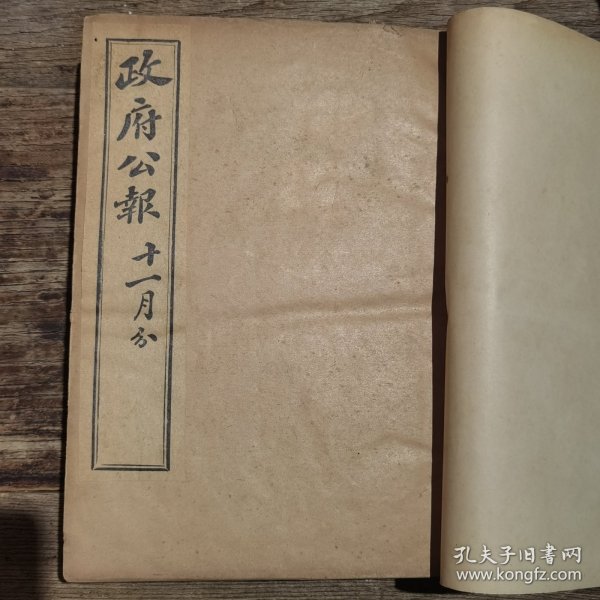 政府公報
十一月分
孔夫子旧书网
www.kongfz.com